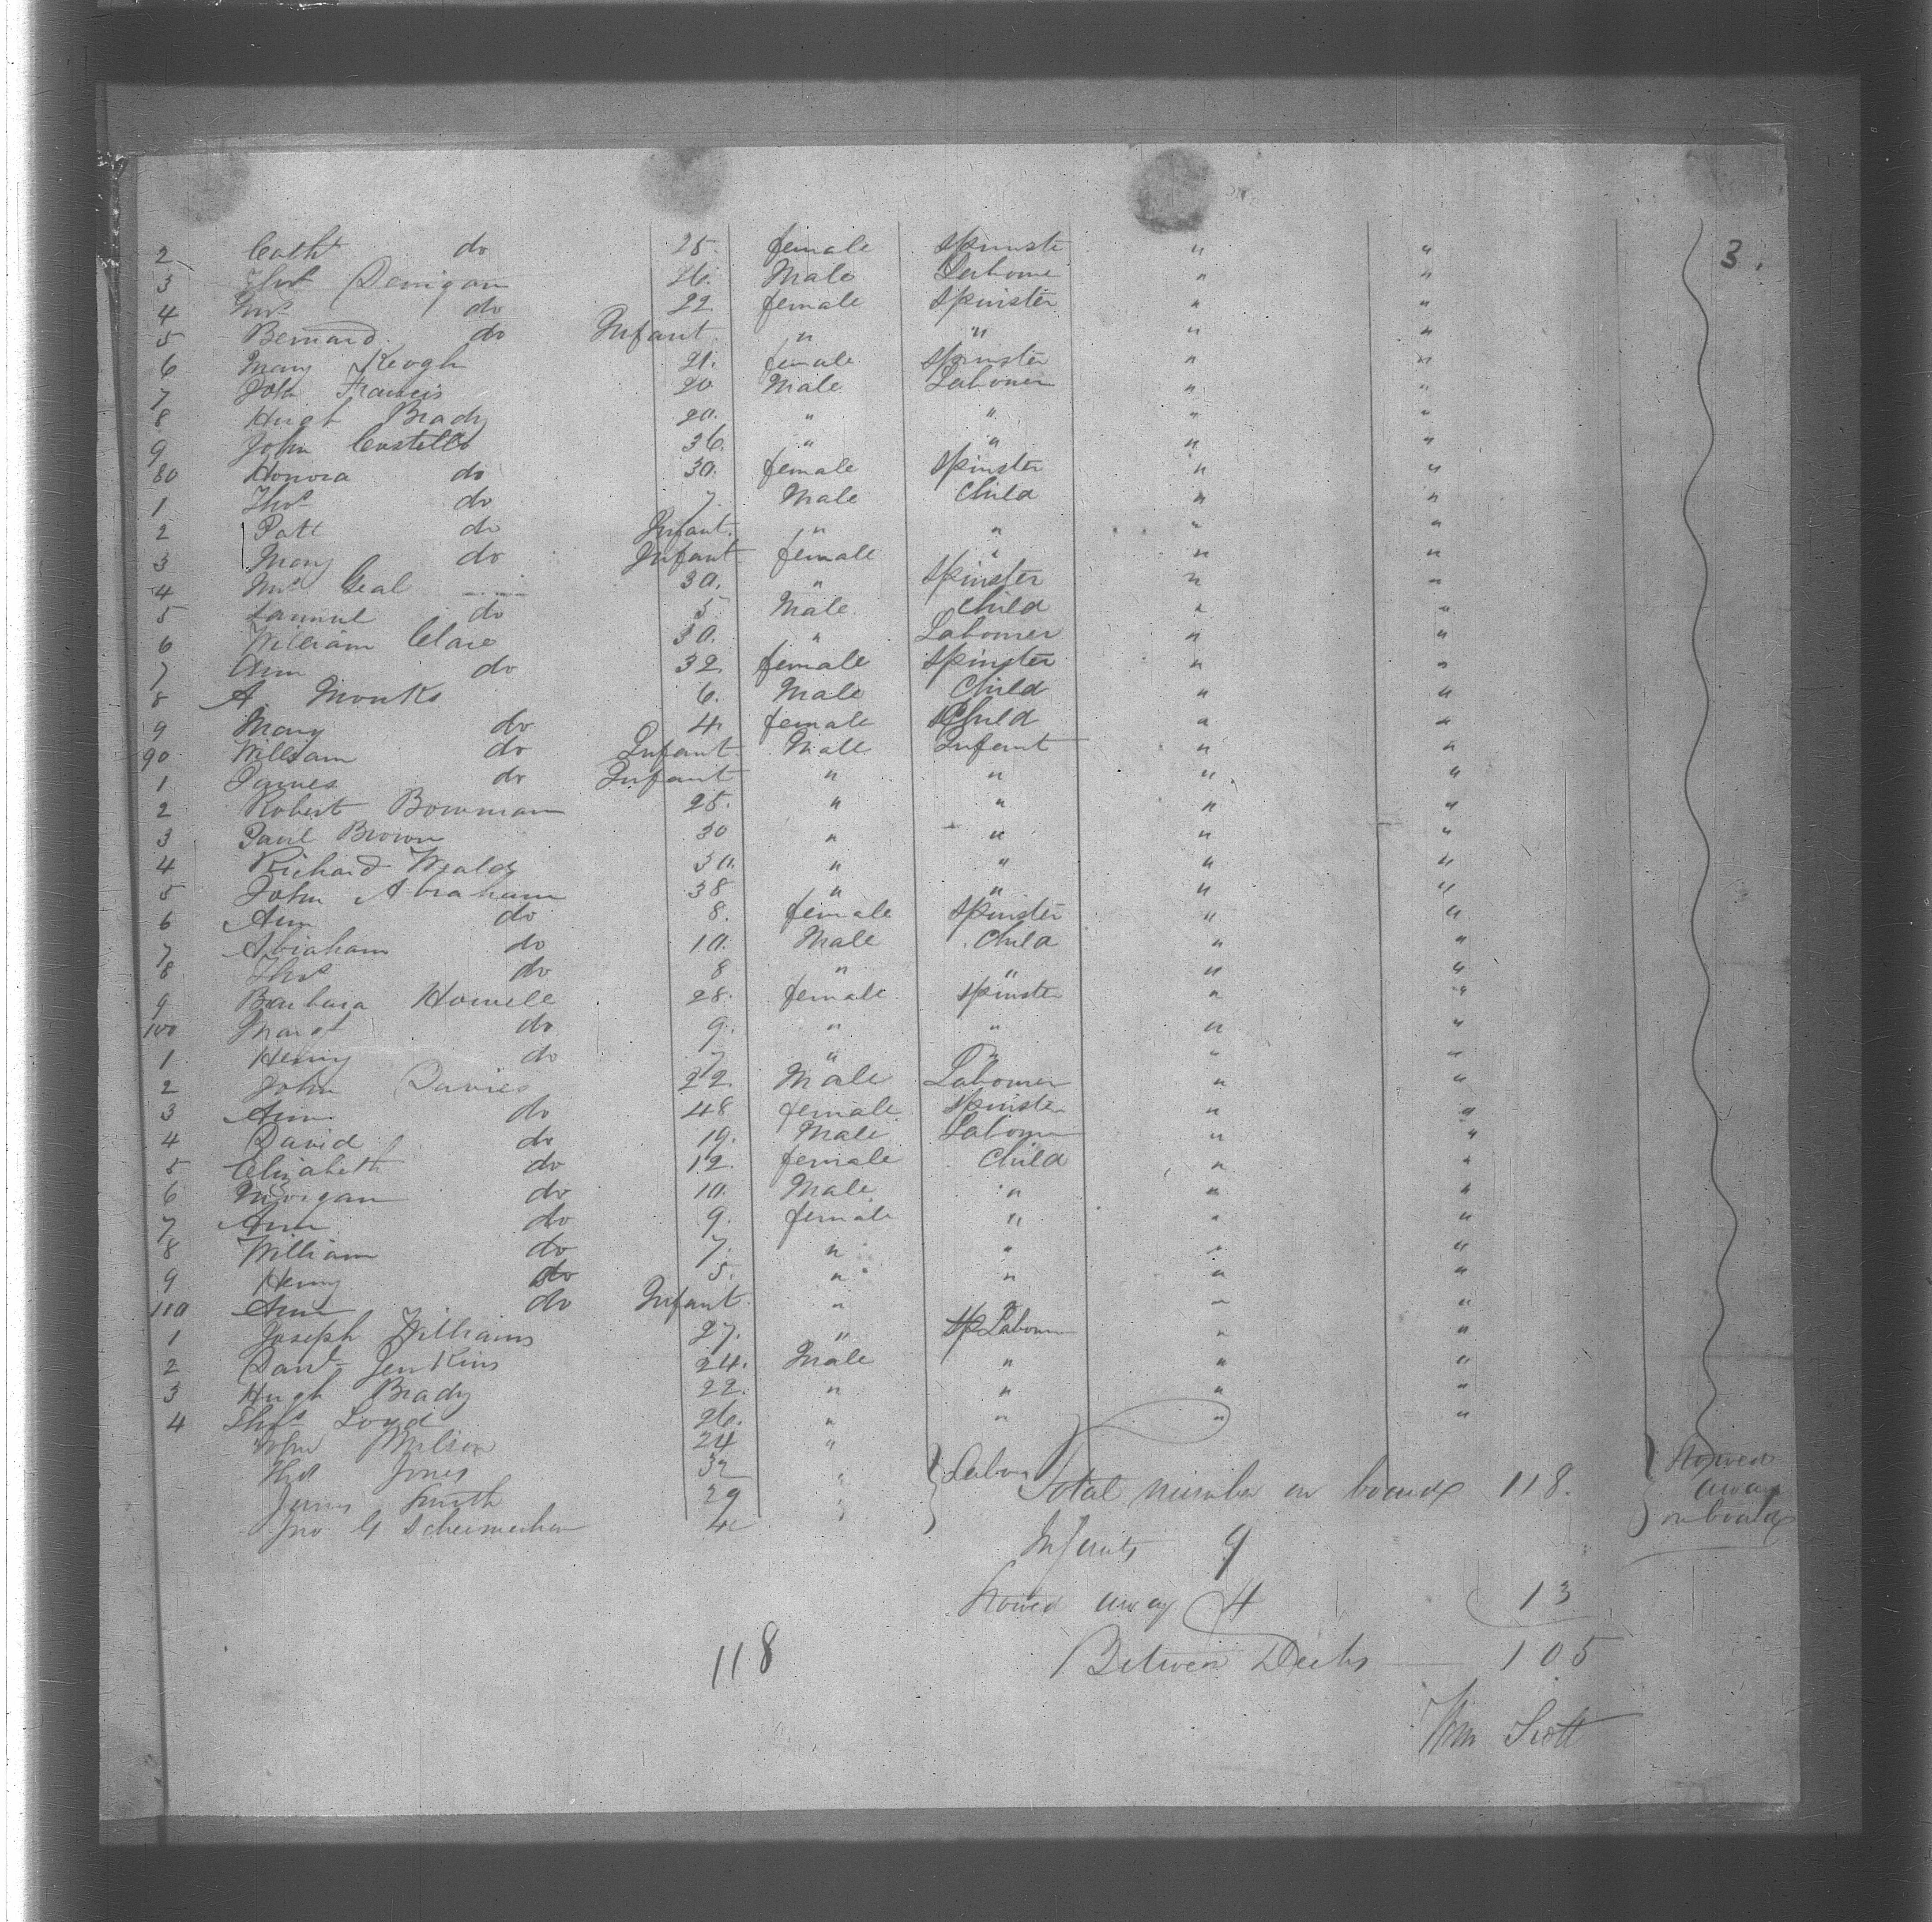 3.
2 Cath do 25. female Spinste " "
3 Thos Dennigan 26. Male Laboure " "
4 Mrs do 22 female Spinster " "
5 Bernard do Infant " " " "
6 Mary Keogh 21. female Spinster " "
7 John Francis 20 Male Labourer " "
8 Hugh Brady 20. " " " "
9 John Costello 36. " " " "
80 Honora do 30. female Spinster " "
1 Thos do 7. Male Child " "
2 Patt do Infant. " " " "
3 Mary do Infant female " " "
4 Mrs Geal 30. " Spinster " "
5 do 5 Male Child " "
6 William Clare 30. " Labourer " "
7 Ann do 32 female Spinster " "
8 A. Monks 6. Male Child " "
9 Mary do 4. female Child " "
90 William do Infant Male Infant " "
1 James do Infant " " " "
2 Robert Bowman 25. " " " "
3 Paul Brown 30 " " " "
4 Richard 30. " " " "
5 John Abraham 38 " " " "
6 Ann do 8. female Spinster " "
7 Abraham do 10. Male Child " "
8 Thos do 8 " " " "
9 Barbara Howell 28. female Spinster " "
100 Margt do 9. " " " "
1 Henry do 7 " " " "
2 John Davies 22. Male Labourer " "
3 Ann do 48 female Spinste " "
4 David do 19. Male Labour " "
5 Elizabeth do 12. female Child " "
6 Morgan do 10. Male " " "
7 Ann do 9. female " " "
8 William do 7. " " " "
9 Henry do 5. " " " "
110 Ann do Infant " " " "
1 Joseph Williams 27. " Sp Labour " "
2 Danl Jenkins 24. Male " " "
3 Hugh Brady 22. " " " "
4 Thos Loyd 26. " " " "
24 "
Thos Jones 32 " Labour
James Smith 29 "
Jno G "
Stowed
away
on board
Total number on board 118.
Infants 9
Stowed away 4 13
118 Between Decks 105
Wm Scott